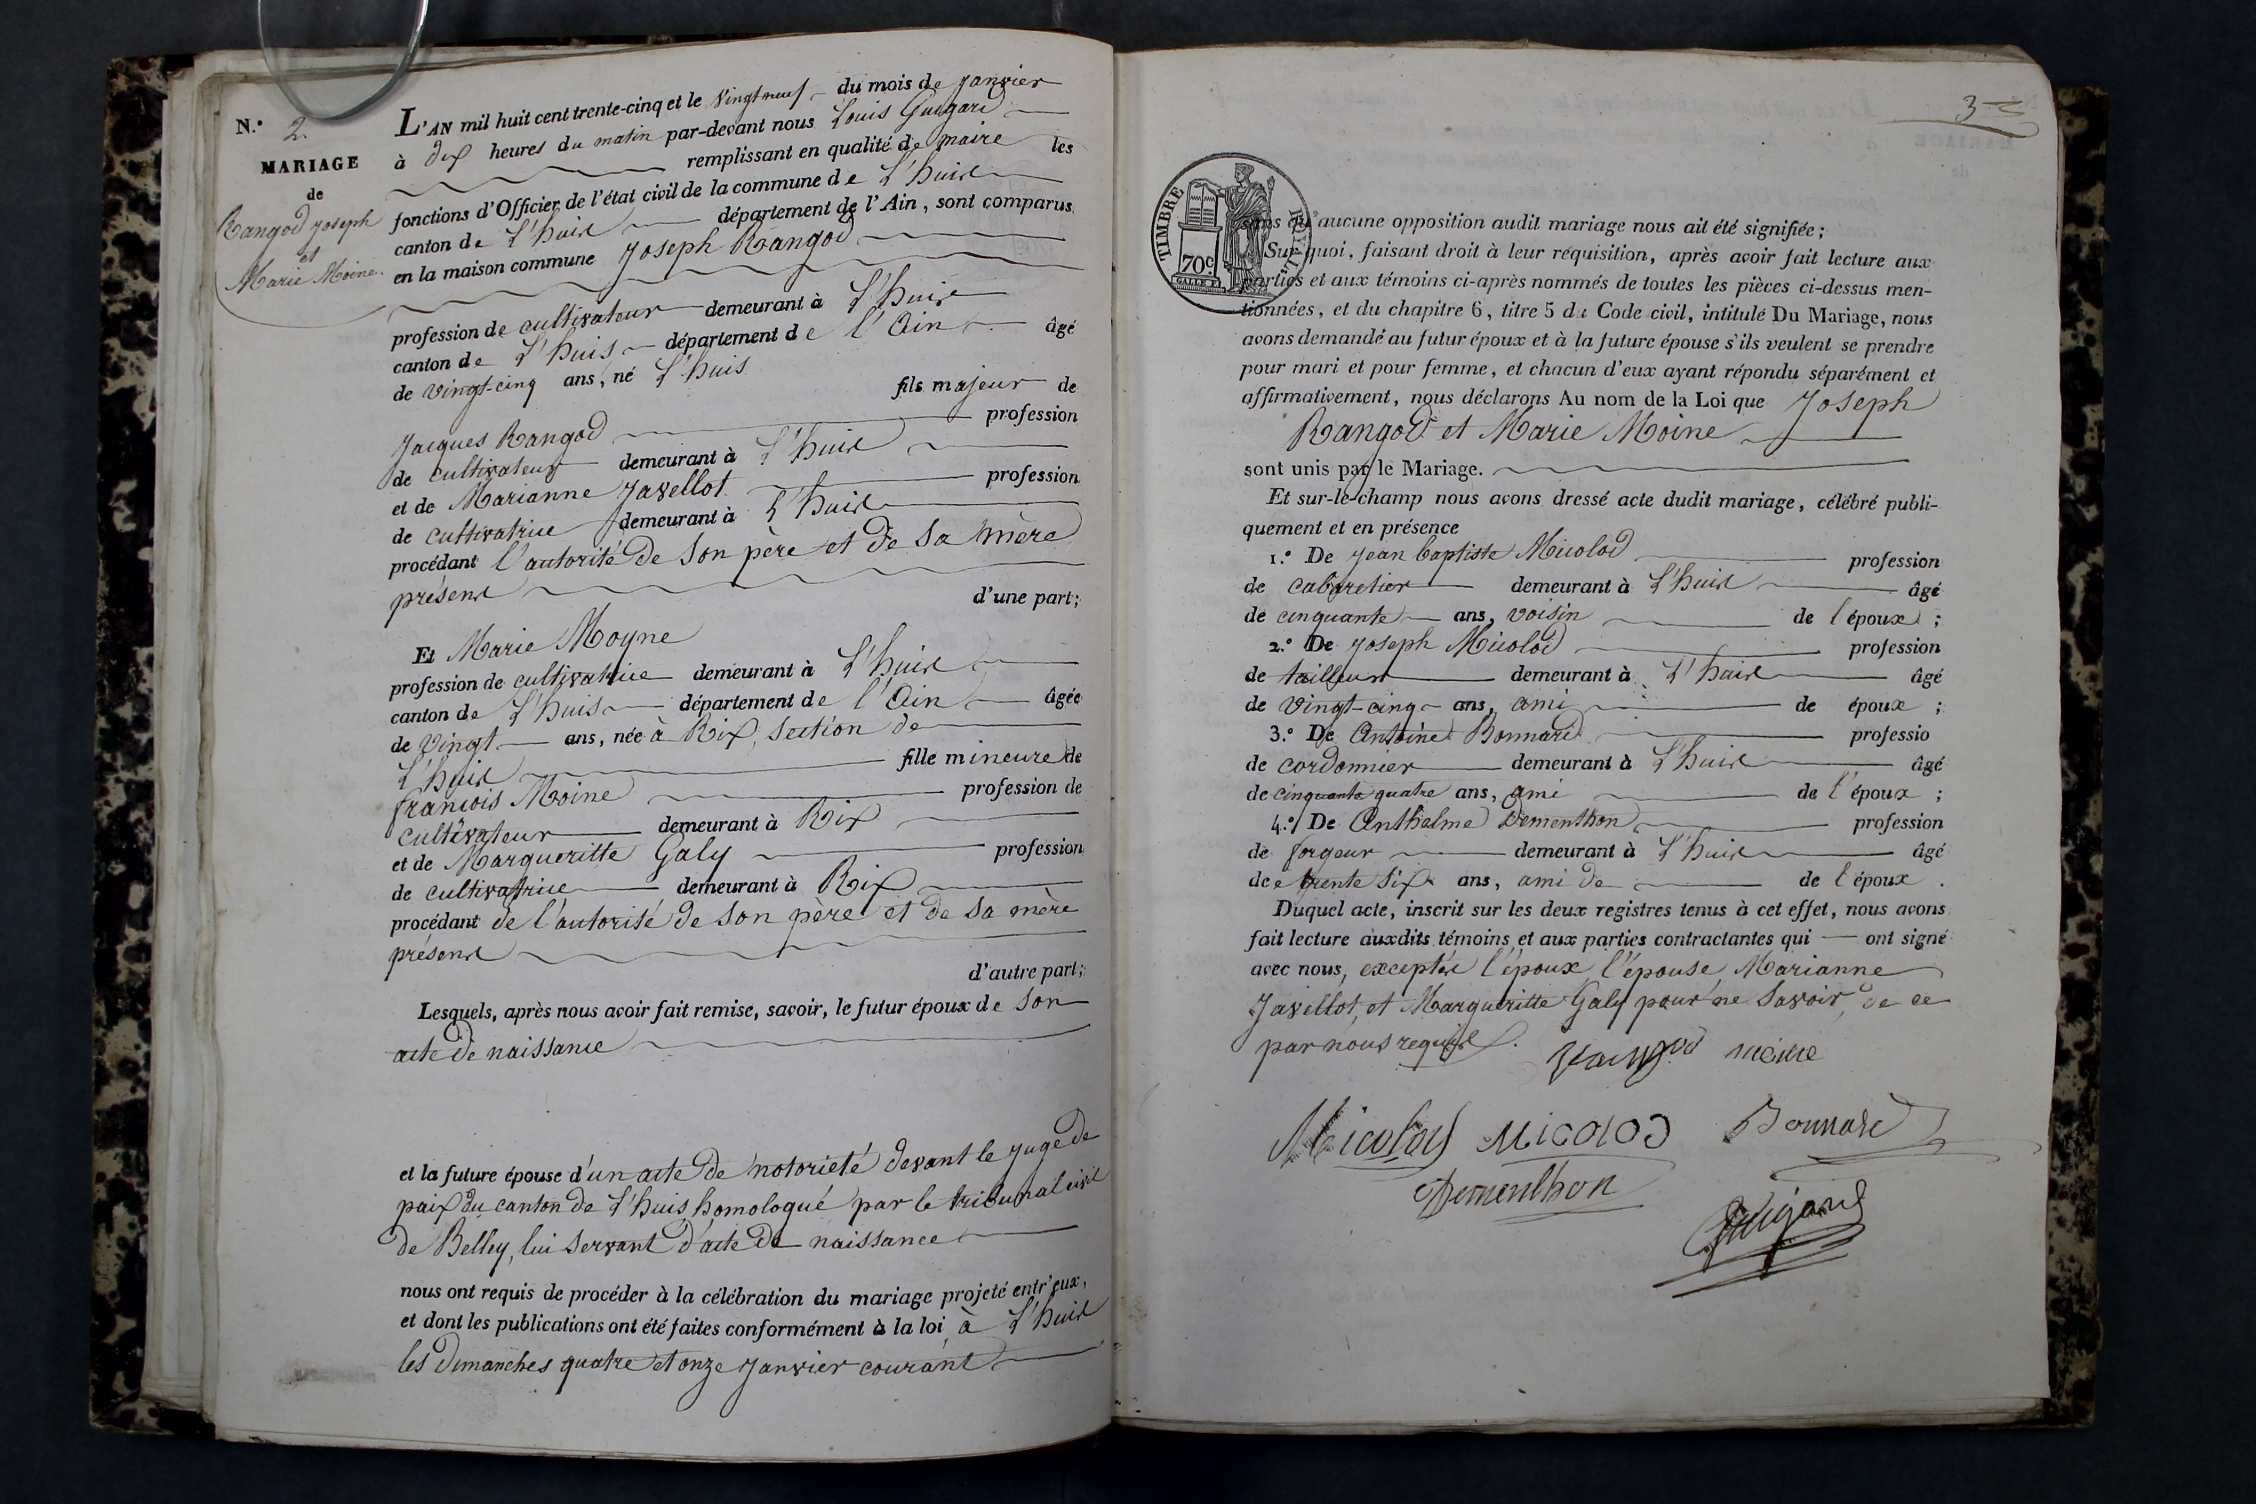 N.° 2.
MARIAGE
de
Rangod Joseph
et
Marie Moine.
L'AN mil huit cent trente-cinq et le Vingt neuf du mois de Janvier
à dix heures du matin par-devant nous Louis Guigard
remplissant en qualité de maire les
fonctions d'Officier de l'état civil de la commune de L'huis
canton de L'huis département de l'Ain, sont comparus
en la maison commune Joseph Rangod
profession de cultivateur demeurant à L'huis
canton de L'huis département de l'Ain âgé
de vingt-cinq ans, né L'huis
fils majeur de
Jacques Rangod profession
de cultivateur demeurant à L'huis
et de Marianne Javellot profession
de cultivatrice demeurant à L'huis
procédant l'autorité de son père et de sa mère
présens
d'une part;
Et Marie Moyne
profession de cultivatrice demeurant à L'huis
canton de L'huis département de l'Ain âgée
de vingt ans, née à Rix, section de
L'huis fille mineure de
francois Moine profession de
cultivateur demeurant à Rix
et de Margueritte Galy profession
de cultivatrice demeurant à Rix
procédant de l'autorité de son père et de sa mère
présens
d'autre part;
Lesquels, après nous avoir fait remise, savoir, le futur époux de son
acte de naissance
et la future épouse d'un acte de notorieté devant le juge de
paix du canton de L'huis homologué par le tribunal civil
de Belley, lui servant d'acte de naissance
nous ont requis de procéder à la célébration du mariage projeté entr'eux,
et dont les publications ont été faites conformément à la loi à L'huis
les dimanches quatre et onze Janvier courant
3
TIMBRE ROYAL
70c
sans qu'aucune opposition audit mariage nous ait été signifiée;
Sur quoi, faisant droit à leur réquisition, après avoir fait lecture aux
parties et aux témoins ci-après nommés de toutes les pièces ci-dessus men-
tionnées, et du chapitre 6, titre 5 du Code civil, intitulé Du Mariage, nous
avons demandé au futur époux et à la future épouse s'ils veulent se prendre
pour mari et pour femme, et chacun d'eux ayant répondu séparément et
affirmativement, nous déclarons Au nom de la Loi que Joseph
Rangod et Marie Moine
sont unis par le Mariage.
Et sur-le-champ nous avons dressé acte dudit mariage, célébré publi-
quement et en présence
1.° De Jean baptiste Micolod profession
de cabaretier demeurant à L'huis âgé
de cinquante ans, voisin de l'époux;
2.° De Joseph Micolod profession
de tailleur demeurant à L'huis âgé
de vingt-cinq ans, ami de époux;
3.° De Antoine Bonnard professio
de cordonnier demeurant à L'huis âgé
de cinquante quatre ans, ami de l'époux;
4.° De Anthelme Dementhon profession
de forgeur demeurant à L'huis âgé
de trente six ans, ami de de l'époux.
Duquel acte, inscrit sur les deux registres tenus à cet effet, nous avons
fait lecture auxdits témoins et aux parties contractantes qui ont signé
avec nous, exceptés l'époux l'épouse Marianne
Javellot, et Margueritte Galy pour ne savoir, de ce
par nous requis.
Rangod moine
Micolod Micolod Bonnard
Dementhon
Guigard